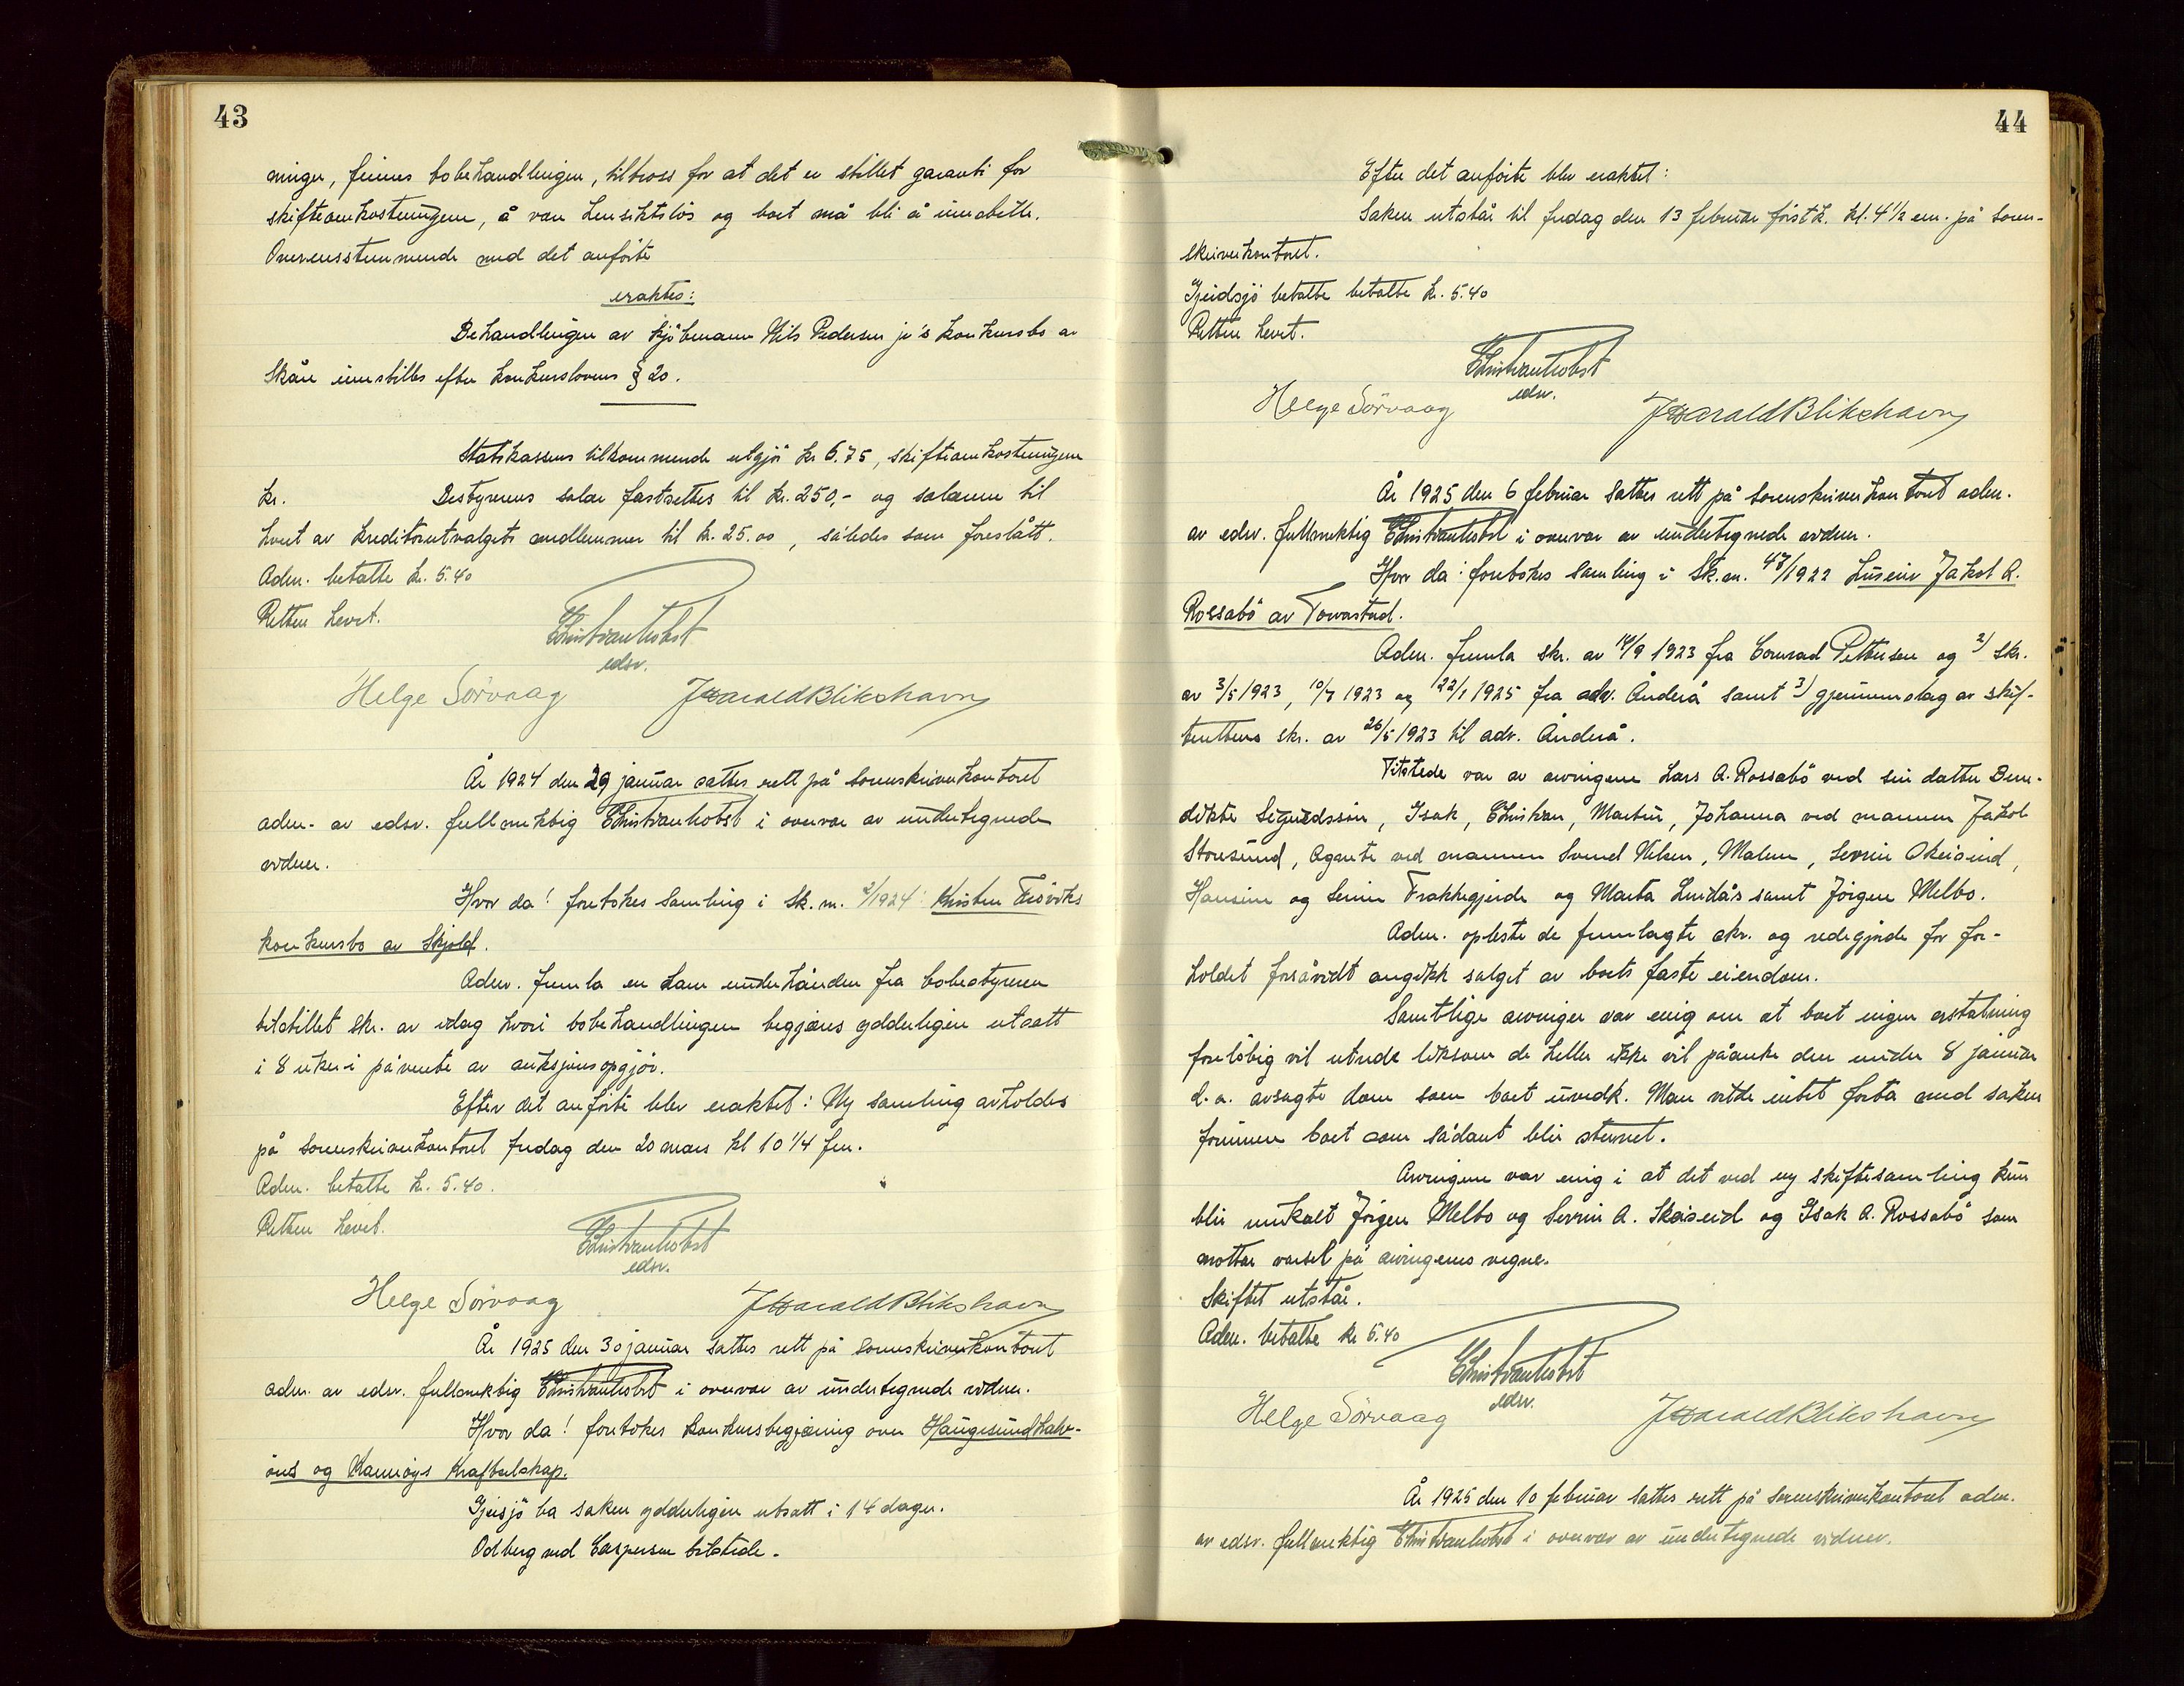 43
ninger, finnes bobehandlingen, tiltross for at det er stillet garanti for
skifteomkostningene, å være hensiktslös og boet må bli å innstille.
Overensstemmende med det anförte
eraktes:
Behandlingen av kjöbmann Nils Pedersen jr's konkursbo av
Skåre innstilles efter konkurslovens § 20.
Statskassens tilkommende utgjör kr 6.75, skifteomkostningene
kr. Bestyrerens salær fastsettes til kr. 250,- og salærene til
hvert av kreditorutvalgets medlemmer til kr. 25.00, således som foreslått.
Adm. betalte kr. 5.40
Retten hevet.
Christian Hobst
edsv.
Helge Sörvaag Harald Blikshavn
År 1924 den 29 januar sattes rett på sorenskriverkontoret
adm. av edsv. fullmektig Christian Hobst i overvær av undertegnede
vidner.
Hvor da! foretokes samling i Sk. m. 2/1924: Kristen
konkursbo av Skjold.
Adm. fremla en ham underhånden fra bobestyreren
tilstillet skr. av idag hvori bobehandlingen begjæres ydderligere utsatt
i 8 uker i påvente av auksjonsopgjör.
Efter det anförte blev eraktet: Ny samling avholdes
på sorenskriverkontoret fredag den 20 mars kl 10 1/4 fm.
Adm. betalte kr. 5.40.
Retten hevet.
Christian Hobst
edsv.
Helge Sörvaag Harald Blikshavn
År 1925 den 30 januar sattes rett på sorenskriverkontoret
adm. av edsv. fullmektig Christian Hobst i overvær av undertegnede vidner.
Hvor da! foretokes konkursbegjæring over Haugesundhalv-
öns og Karmöys Kraftselskap.
Gjeisjö ba saken ydderligere utsatt i 14 dager.
Odberg ved Caspersen tilstede.
44
Efter det anförte blev eraktet:
Saken utstår til fredag den 13 februar förstk. kl. 4 1/2 em. på soren-
skriverkontoret.
Gjeidsjö betalte betalte kr. 5.40
Retten hevet.
Christian Hobst
edsv.
Helge Sörvaag Harald Blikshavn
År 1925 den 6 februar sattes rett på sorenskriverkontoret adm.
av edsv. fullmektig Christian Hobst i overvær av undertegnede vidner.
Hvor da: foretokes samling i Sk. m. 47/1922 Luseiv Jakob A.
Rossabö av Torvastad.
Adm. fremla skr. av 14/9 1923 fra Conrad Pettersen og 2) skr.
av 3/5 1923, 10/7 1923 og 22/1 1925 fra adv. Änderå samt 3) gjennemslag av skif-
terettens skr. av 26/5 1923 til adv. Änderå.
Tilstede var av arvingene Lars A. Rossabö ved sin datter Ben-
dikte Sigurdssön, Isak, Christian, Martin, Johanna ved mannen Jakob
Storesund, Agnete ved mannen Svend Nilsen, Malene, Serrin Skeiseid,
Hansine og Serine Frakkagjerde og Marta Lindås samt Jörgen Melbo.
Adm. opleste de fremlagte skr. og redegjorde for for-
holdet forsåvidt angikk salget av boets faste eiendom.
Samtlige arvinger var enig om at boet ingen erstatning
foreløbig vil utrede liksom de heller ikke vil påanke den under 8 januar
d. a. avsagte dom som boet innedk. Man vilde intet foreta med saken
forinnen boet som sådant blir stevnet.
Arvingene var enig i at det ved ny skiftesamling kun
blir innkalt Jörgen Melbo og Serrin A. Skeiseid og Isak A. Rossabö som
mottar varsel på arvingenes vegne.
Skiftet utstår.
Adm. betalte kr 5.40
Christian Hobst
edsv.
Helge Sörvaag Harald Blikshavn
År 1925 den 10 februar sattes rett på sorenskriverkontoret adm.
av edsv. fullmektig Christian Hobst i overvær av undertegnede vidner.